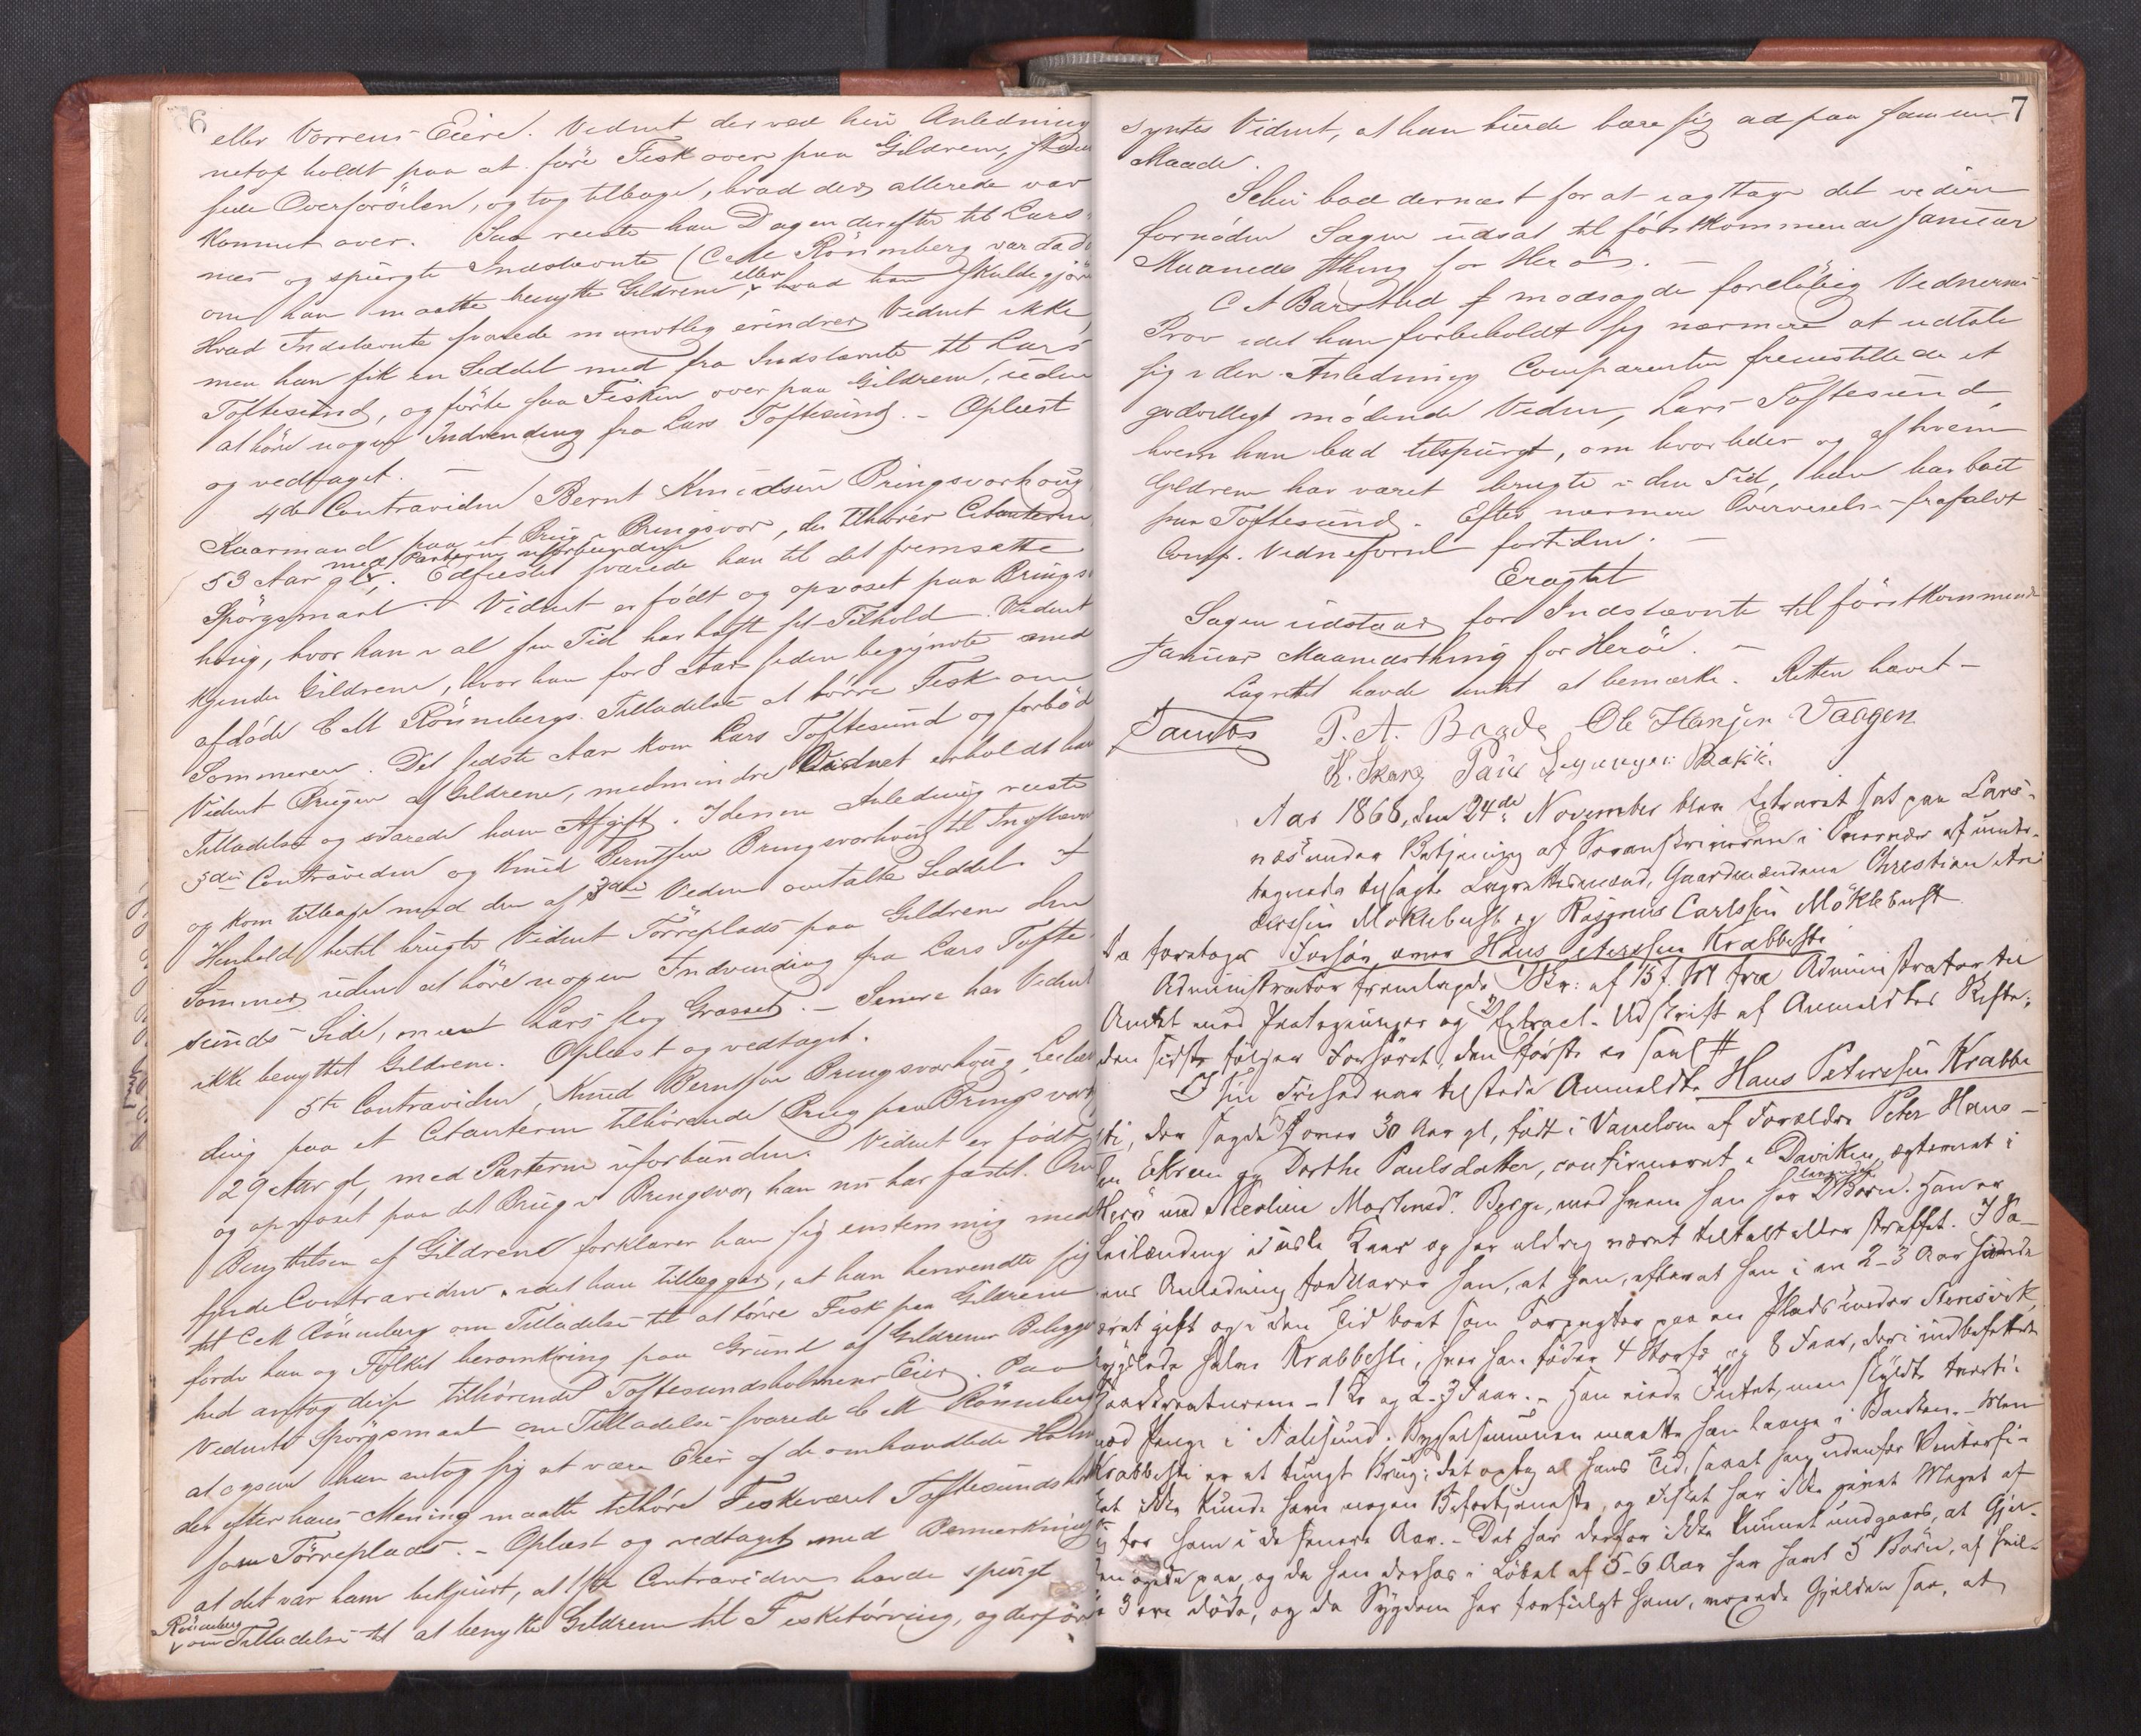 6
eller Vorrens Eiere. Vidnet der ved hin Anledning
netop holdt paa at före Fisk over paa Gildrem,
sede Overförselen, og tog tilbage, hvad der allerede var
kommet over. Saa reiste han Dagen derefter til Lars-
næs og spurgte Indstævnte (C M Rönneberg var da
om han maatte benytte Gildrem, eller hvad han skulde gjöre
Hvad Indstævnte svarede mundtlig erindrer Vidnet ikke,
men han fik en Seddel med fra Indstævnte til Lars
Toftesund, og förte saa Fisken over paa Gildrem, uden
at höre nogen Indvending fra Lars Toftesund. - Oplæst
og vedtaget. -
4de Contravidne Bernt Knudsen Bringsvorhoug
Kaarmand paa et Brug i Bringsvor, der tilhörer Citanterne
53 Aar gl, med Parterne uforbunden. Edfæstet svarede han til det fremsatte
Spörgsmaal: Vidnet er födt og opvoxet paa Brings-
houg, hvor han i al sin Tid har havt sit Tilhold. Vidnet
kjender Gildrene, hvor han for 8 Aar siden begyndte med
afdöde C M Rönnebergs Tilladelse at törre Fisk om
Sommeren. Det sidste Aar kom Lars Toftesund og forböd
Vidnet Brugen af Gildrene, medmindre Vidnet erholdt hans
Tilladelse og svarede ham Afgift. I denne Anledning reiste
5te Contravidne og Knud Berntsen Bringsvorhoug til
og kom tilbage med den af 3die Vidne omtalte Seddel. I
Henhold hertil brugte Vidnet Törreplads paa Gildrene den
Sommer uden at höre nogen Indvending fra Lars Tofte-
sunds Side, men Lars slog Græsset. - Senere har Vidnet
ikke benyttet Gildrene. Oplæst og vedtaget.
5te Contravidne, Knud Berntsen Bringsvorhoug, Leilæn-
ding paa et Citanterne tilhörende Brug paa Bringsvor,
29 Aar gl, med Parterne uforbunden. Vidnet er födt
og opvoxet paa det Brug i Bringsvor, han nu har fæstet. Om
Benyttelsen af Gildrene forklarer han sig enstemmig med
fjerde Contravidne, idet han tillægger, at han henvendte sig
til C M Rönneberg om Tilladelse til at törre Fisk paa Gildrene
fordi han og Folket heromkring paa Grund af Gildrenes Beliggen-
hed antog disse tilhörende Toftesundsholmens Eier. Paa
Vidnets Spörgsmaal om Tilladelse svarede C M Rönneberg
at ogsaa han antog sig at være Eier af de omhandlede Holme
der efter hans Mening maatte tilhöre Fiskeværet Toftesundsholm
som Törreplads. - Oplæst og vedtaget med Bemærkning
at det var ham bekjendt, at 1ste Contravidne havde spurgt
Rönneberg om Tilladelse til at benytte Gildrene til Fisketörring, og derfor
7
syntes Vidnet, at han burde bære sig ad paa samme
Maade.
bad dernæst for at iagttage det videre
fornödne Sagen udsat til förstkommende Januar
Maaneds Thing for Heröe. -
C A Barstad modsagde forelöbig Vidnernes
Prov idet han forbeholdt sig nærmere at udtale
sig i den Anledning Comparenten fremstillede et
godvilligt mödende Vidne, Lars Toftesund,
hvem han bad tilspurgt, om hvorledes og af hvem
Gildrene har været brugte i den Tid, han har boet
paa Toftesund. Efter nærmere Overveielse frafaldt
Comp. Vidneförsel fortiden. -
Eragtet
Sagen udstaar for Indstævnte til förstkommende
Januar Maanedsthing for Heröe. -
Lagrettet havde intet at bemærke. Retten hævet -
P. A. Ole Hansen Vaagen
Aar 1868, den 24de November blev Extraret sat paa Lars-
næs under Betjening af Sorenskriveren i af under-
tegnede tilsagte Lagrettesmænd, Gaardmændene Christian An-
dersen Möklebust og Rasmus Carlssen Möklebust
da foretoges Forhör over Hans Peterssen Krabbesti
Administrator fremlagde Skr: af 13 f. M fra Administrator til
Amtet med Paategninger og Extract-Udskrift af Anmeldtes Skifte;
den sidste fölger Forhöret, den förste er saal #
I sin Frihed var tilstede Anmeldte Hans Peterssen Krabbe
sti, der sagde: over 30 Aar gl, födt i Vanelven af Forældre Peter Hans-
sen Ekrem og Dorthe Paulsdatter, confirmeret i Daviken, ægteviet i
Herö med Nicoline Martinsd. Berge, med hvem han har 2 levende Börn. Han er
Leilænding i usle Kaar og har aldrig været tiltalt eller straffet. I Sa-
gens Anledning forklarer han, at han, efterat han i en 2-3 Aar havde
været gift og i den Tid boet som Forpagter paa en Plads under Stensvik,
bygslede halve Krabbesti, hvor han föder 4 Storfe og 8 Faar, deri indbefattet
Foderkreaturene - 1 Ko og 2-3 Faar. - Han eiede Intet, men skyldte tverti-
mod Penge i Aalesund. Bygselsummen maatte han laane i Banken. - Men
Krabbesti er et tungt Brug: det optog al hans Tid, saaat han udenfor Vinterfi-
sket ikke kunde have nogen Bifortjeneste, og Fisket har ikke givet Meget af
sig for ham i de senere Aar. - Det har derfor ikke kunnet undgaaes, at Gjel-
den ögede paa, og da han derhos i Löbet af 5-6 Aar har havt 5 Börn, af hvil-
ke 3 ere döde, og da Sygdom har forfulgt ham, voxede Gjelden saa, at